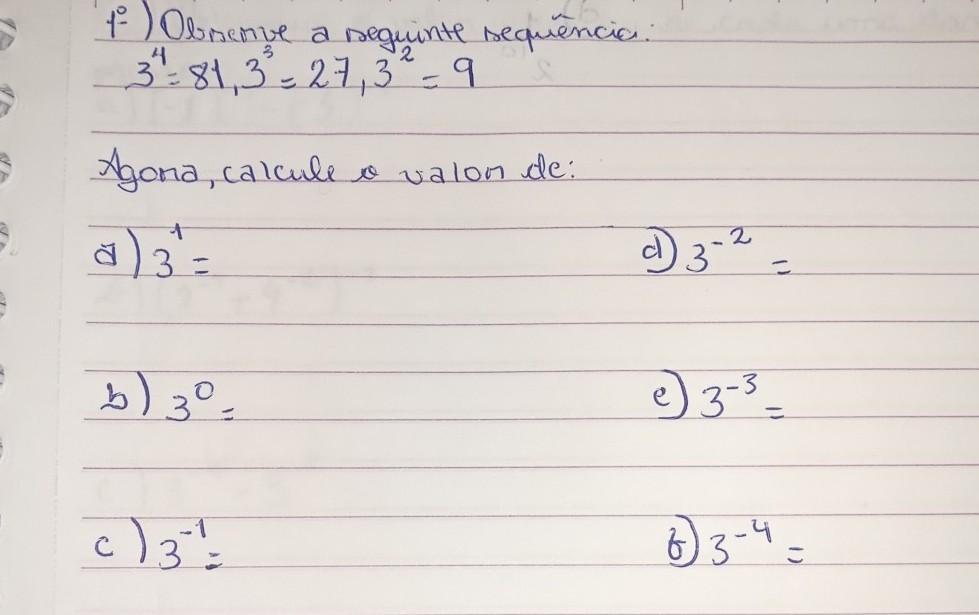 1º) Observe a seguinte sequência:
3⁴ = 81, 3³ = 27, 3² = 9
Agora, calcule o valor de:
a) 3¹ =
d) 3⁻² =
b) 3⁰ =
e) 3⁻³ =
c) 3⁻¹ =
f) 3⁻⁴ =